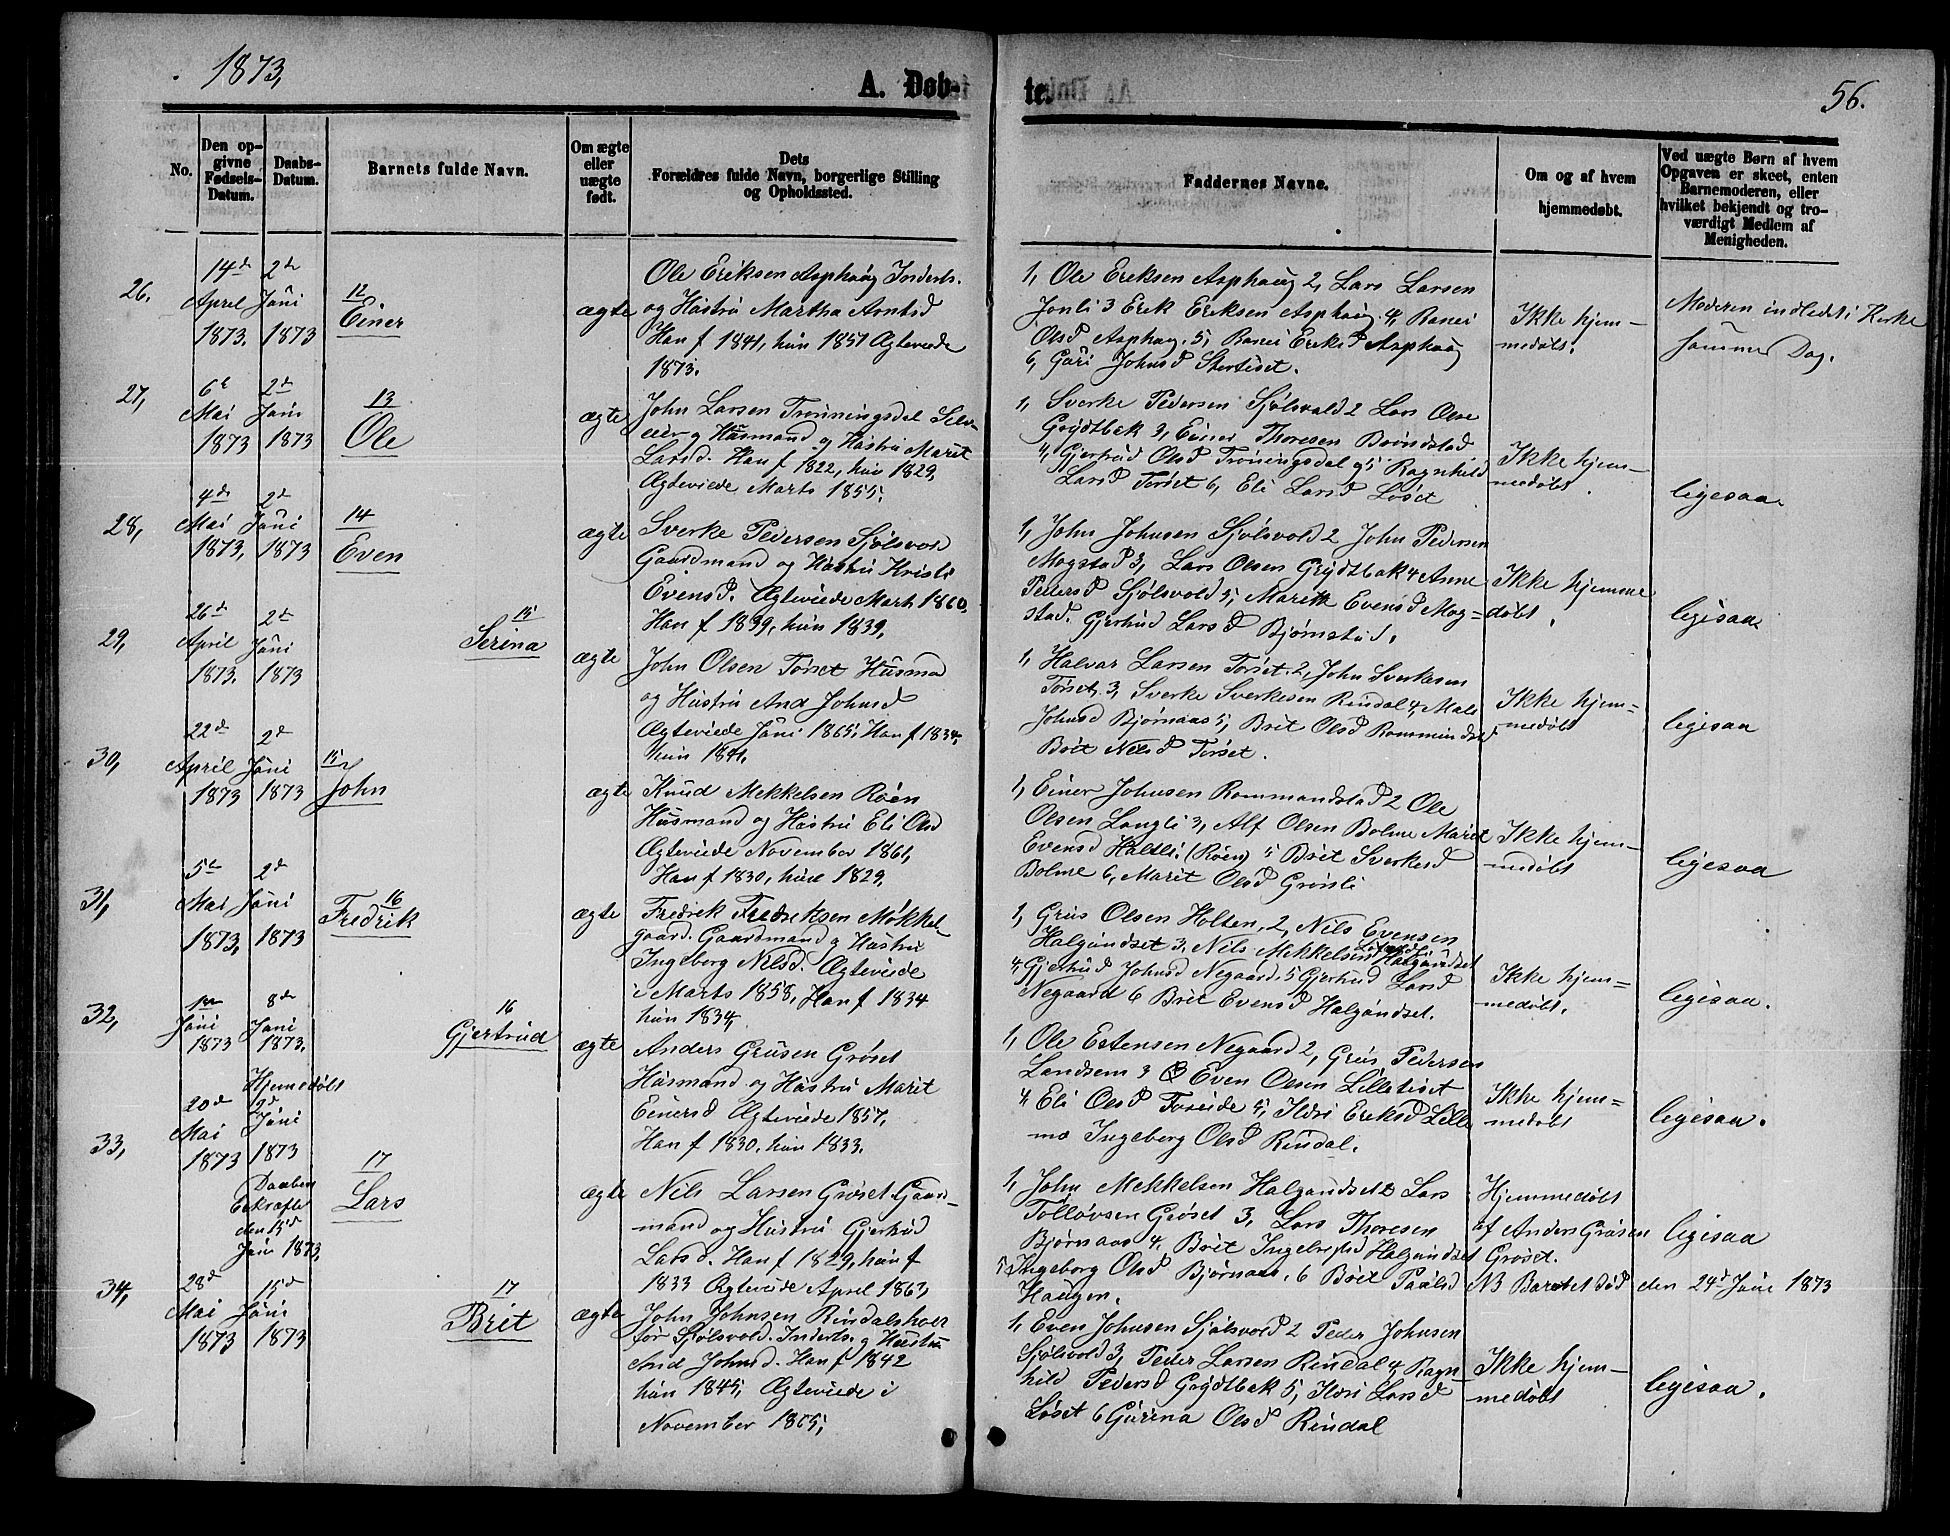 1873,
A. Døb-
te.
56.
No.
Den op-
givne
Fødsels-
Datum.
Daabs-
Datum.
Barnets fulde Navn.
Om ægte
eller
uægte
født.
Dets
Forældres fulde Navn, borgerlige Stilling
og Opholdssted.
Faddernes Navne.
Om og af hvem
hjemmedøbt.
Ved uægte Børn af hvem
Opgaven er skeet, enten
Barnemoderen, eller
hvilket bekjendt og tro-
værdigt Medlem af
Menigheden.
26.
14de
April
1873.
2de
Juni
1873
12
Einer
ægte
Ole Eriksen Asphaug Inderts.
og Hustru Martha Arntsd
Han f 1841, hun 1851 Ægteviede
1873.
1, Ole Eriksen Asphaug 2, Lars Larsen
Jonli 3 Erik Eriksen Asphaug. 4, Ranei
Olsd Asphaug. 5, Ranei Eriksd Asphaug
6, Guri Johnsd Stortiset.
Ikke hjem-
medøbt.
Moderen indledet i Kirke
samme Dag.
27,
6te
Mai
1873
2d
Juni
1873
13
Ole
ægte
John Larsen Trønningsdal Selv-
eier og Husmand og Hustru Marit
Larsd. Han f 1822, hun 1829,
Ægteviede Marts 1855,
1, Sverke Pedersen Sjølsvold 2 Lars Olse
Grydtbak 3, Einer Thoresen Brøndstad
4, Gjertrud Olsd Trøningsdal 5 Ragnhild
Larsd Torset 6, Eli Larsd Løset
Ikke hjem-
medøbt.
ligesaa.
28,
4de
Mai
1873,
2d
Juni
1873
14
Even
ægte
Sverke Pedersen Sjølsvold
Gaardmand og Hustru Kristi
Evensd. Ægteviede Marts 1860.
Han f 1839, hun 1839,
1, John Johnsen Sjølsvold 2 John Pedersen
Mogstad 3, Lars Olsen Grydtbak 4 Anne
Pedersd Sjølsvold 5, Marit Evensd Mog-
stad. Gjertrud Larsd Bjørnstad.
Ikke hjemme
døbt.
ligesaa
29,
26de
April
1873.
2d
Juni
1873
15
Serina
ægte
John Olsen Torset Husma
og Hustru And Johnsd
Ægteviede Juni 1865, Han f 1834,
hun 1841,
1, Halvar Larsen Torset. 2, John Sverkesen
Torset, 3, Sverke Sverkesen Rindal 4, Mali
Johnsd Bjørnaas 5, Brit Olsd Rommundstd
Brit Nilsd Torset.
Ikke hjem-
medøbt
ligesaa
30,
22de
April
1873
2d
Juni
1873
15
John
ægte
Knud Mekkelsen Røen
Husmand og Hustru Eli Olsd
Ægteviede November 1861,
Han f 1830, hun 1829,
1, Einer Johnsen Rommundstad 2 Ole
Olsen Langli 3, Alf Olsen Bolme Marit
Evensd Haltli (Røen) 5 Brit Sverkesd
Bolme 6, Marit Olsd Grønli
Ikke hjem-
medøbt
ligesaa
31,
5te
Mai
1873,
2d
Juni
1873
16
Fredrik
ægte
Fredrik Fredriksen Møkkel
gaard. Gaardmand og Hustru
Ingeborg Nilsd. Ægteviede
i Marts 1858, Han f 1834
hun 1834,
1, Gruis Olsen Holten, 2, Nils Evensen
Halgundset 3, Nils Mekkelsen Halgundset
4, Gjertrud Johnsd Negaard. 5 Gjertrud Larsd
Negaard 6 Brit Evensd Halgundset.
Ikke hjem-
medøbt.
ligesaa.
32,
1ste
Juni
1873
8de
Juni
1873.
16
Gjertrud
ægte
Anders Grusen Grøset
Husmand og Hustru Marit
Einersd Ægteviede 1857,
Han f 1830, hun 1833.
1, Ole Estensen Negaard 2, Gruis Pedersen
Landsem 3 Even Olsen Lilletiset
4, Eli Olsd Toreide 5, Ildri Eriksd Lille
mo Ingeborg Olsd Rindal.
Ikke hjem-
medøbt
ligesaa.
33,
20d
Mai
1873
Hjemmedøbt
9de
Juni
1873
Daaben
bekræftet
den 15d
Juni 1873,
17
Lars
ægte
Nils Larsen Grøset Gaard-
mand og Hustru Gjertrud
Larsd. Han f 1829, hun f
1833 Ægteviede April 1863,
1, John Mekkelsen Halgundset 2 Lars
Tolløvsen Grøset 3, Lars Thoresen
Bjørnaas 4, Brit Ingebrigtsd Halgundset
5 Ingeborg Olsd Bjørnaas. 6 Brit Paalsd
Haugen.
Hjemmedøbt
af Anders Grusen
Grøset.
NB Barnet død den 24de Juni 1873
ligesaa
34,
28d
Mai
1873
15d
Juni
1873
17
Brit
ægte
John Johnsen Rindalshoel
før Sjølsvold. Inderts. og Hustru
And Johnsd. Han f 1842
hun 1845, Ægteviede i
November 1865,
1, Even Johnsen Sjølsvold 2 Peder Johnsen
Sjølsvold 3, Peder Larsen Rindal 4, Ragn
hild Pedersd Grydtbak 5, Ildri Larsd
Løset 6 Gurina Olsd Rindal
Ikke hjem-
medøbt
ligesaa.